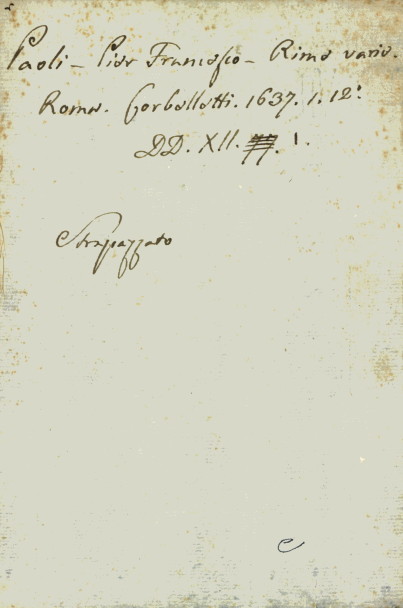 Paoli - Pier Francesco - Rime varie.
Roma. Corbelletti. 1637. 1. 12º
DD. XII. 1.
Strapazzato